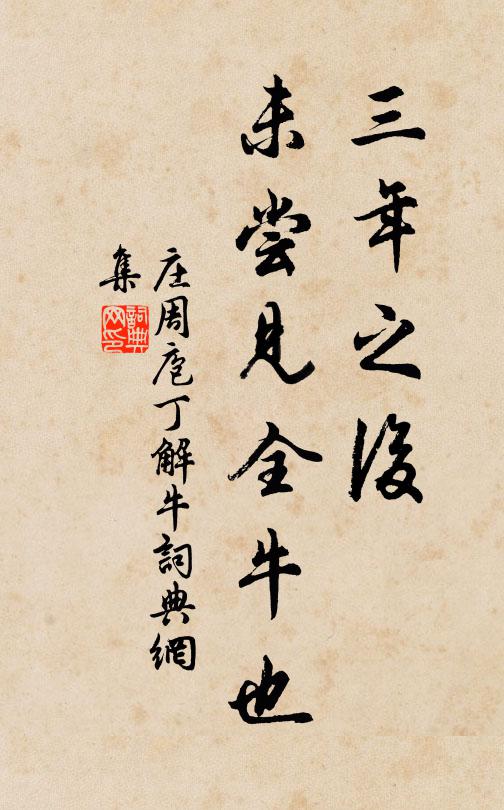 三年之後
未尝见全牛也
庄周庖丁解牛詞典網
集
詞典网印